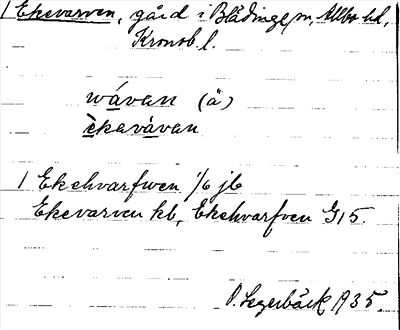 1 Ekevarven, gård i Blädinge sn, Allbo hd,
Kronob. l.
wávan (ä)
èkavávan
1 Ekehvarfwen 1/6 jb
Ekevarven kb, Ekehvarfven G15.
O. Segerbäck 1935.